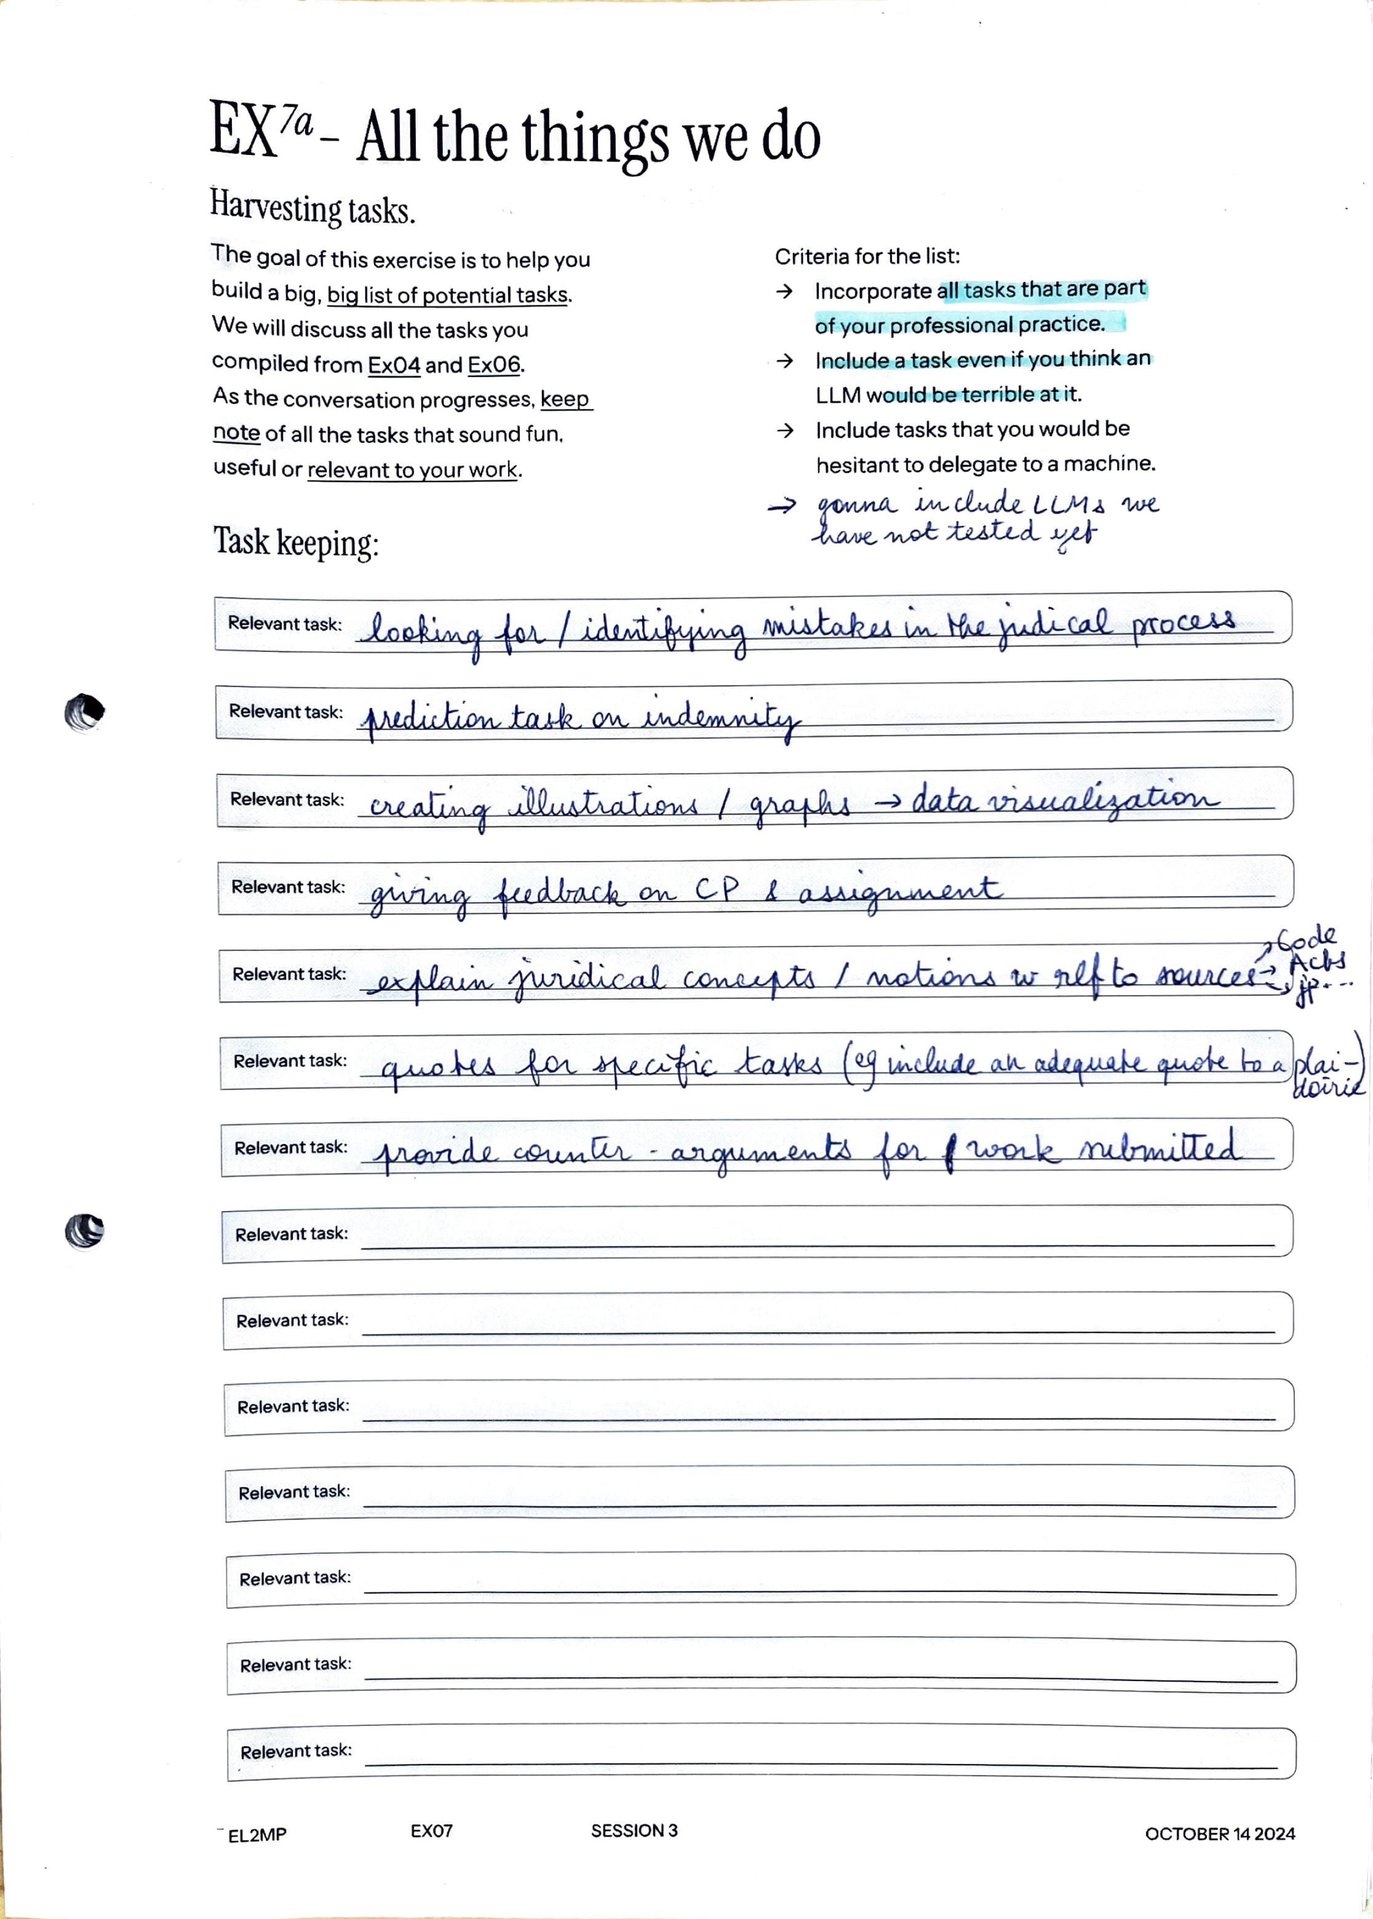 EX7a – All the things we do
Harvesting tasks.
The goal of this exercise is to help you
build a big, big list of potential tasks.
We will discuss all the tasks you
compiled from Ex04 and Ex06.
As the conversation progresses, keep
note of all the tasks that sound fun,
useful or relevant to your work.
Criteria for the list:
→ Incorporate all tasks that are part
of your professional practice.
→ Include a task even if you think an
LLM would be terrible at it.
→ Include tasks that you would be
hesitant to delegate to a machine.
→ gonna include LLMs we
have not tested yet
Task keeping:
Relevant task: looking for / identifying mistakes in the judical process
Relevant task: prediction task on indemnity
Relevant task: creating illustrations / graphs → data visualization
Relevant task: giving feedback on CP & assignment
Relevant task: explain juridical concepts / notions w ref to sources → Code
→ Acts
→ jp...
Relevant task: quotes for specific tasks (eg include an adequate quote to a plai-
doirie)
Relevant task: provide counter-arguments for work submitted
Relevant task:
Relevant task:
Relevant task:
Relevant task:
Relevant task:
Relevant task:
Relevant task:
EL2MP EX07 SESSION 3 OCTOBER 14 2024